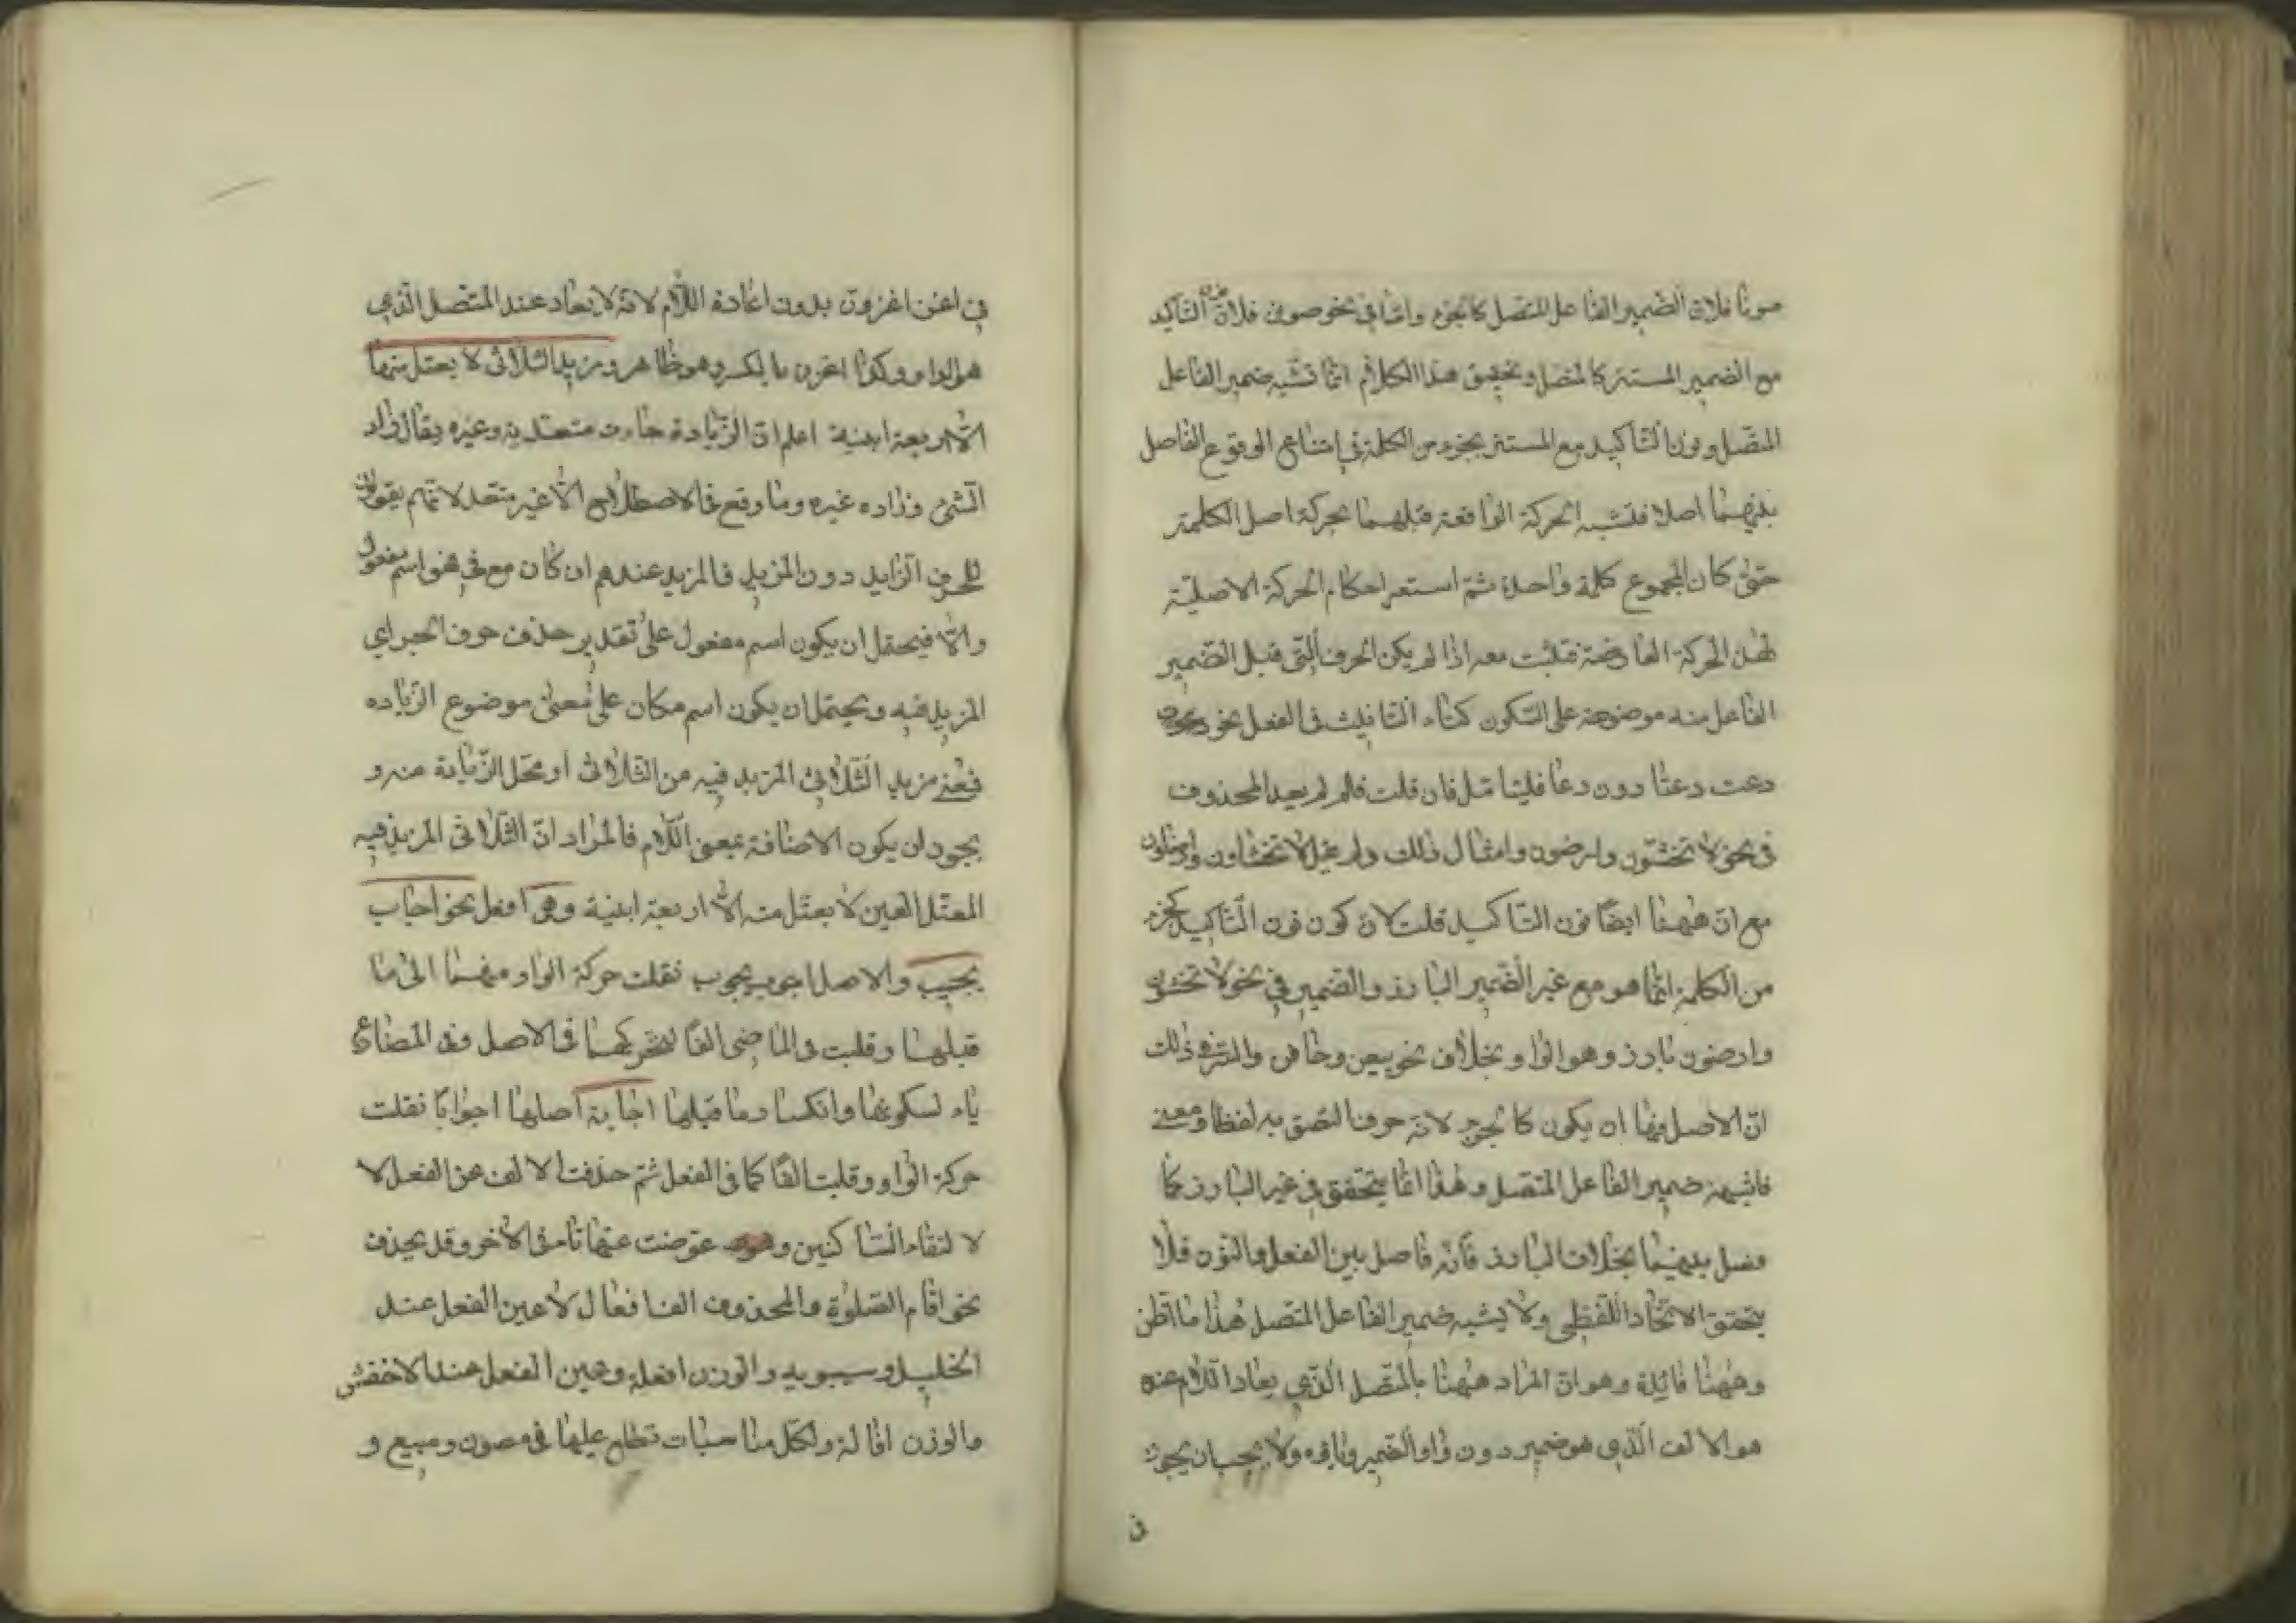 صونا فلان الضمير الفاعل المتصل كالجزء واما في نحو صونن فلان التاكيد
مع الضمير المستتر كالمتصل وتحقيق هذا الكلام انما نشبه ضمير الفاعل
المتصل ونون التاكيد مع المستتر بجزء من الكلمة في امتناع الوقوع الفاصل
بينهما اصلا فنشبه الحركة الواقعة قبلهما بحركة اصل الكلمة
حتى كان المجموع كلمة واحدة ثم استعير احكام الحركة الاصلية
لهذه الحركة العارضة فتثبت معه اذا لم يكن الحرف التي قبل الضمير
الفاعل منه موضوعة على السكون كتاء التانيث في الفعل نحو
دعت دعتا دون دعا فليتامل فان قلت فلم لم يعيد المحذوف
في نحو لا تخشون وارضون وامثال ذلك ولم يقل لا تخشاون وارضاون
مع ان ههنا ايضا نون التاكيد قلت لان كون نون التاكيد كجزء
من الكلمة انما هو مع غير الضمير البارز والضمير في نحو لا تخشون
وارضون بارز وهو الواو بخلاف نحو بيعن وخافن والسر في ذلك
ان الاصل فيها ان يكون كالجزء لانه حرف التصق به لفظا ومعنى
فاشبهة ضمير الفاعل المتصل وهذا انما يتحقق في غير البارز كما
فصل بينهما بخلاف البارز فانه فاصل بين الفعل والنون فلا
يتحقق الاتحاد اللفظي ولا يشبه ضمير الفاعل المتصل هذا ما اظن
وههنا فائدة وهو ان المراد ههنا بالمتصل الذي يعاد اللام عنده
هو الالف الذي هو ضمير دون واو الضمير ويائه ولا يجب ان يجوز
في
في اغزن اغزون بدون اعادة اللام لانه لا يعاد عند المتصل الذي
هو الواو وكذا اغزن بالكسر وهو ظاهر ومزيد الثلاثي لا يعتل منها
الا اربعة ابنية اعلم ان الزيادة جاءت متعدية وغيره يقال زاد
الشئ وزاده غيره وما وقع في الاصطلاح الا غير متعد لانهم يقولون
للحرف الزايد دون المزيد فالمزيد عندهم ان كان مع في فهو اسم مفعول
والا فيحتمل ان يكون اسم مفعول على تقدير حذف حرف الجر اي
المزيد فيه ويحتمل ان يكون اسم مكان على معنى موضوع الزياده
فمعنى مزيد الثلاثي المزيد فيه من الثلاثي او محل الزيادة منه و
يجوز ان يكون الاضافة بمعنى اللام فالمراد ان الثلاثي المزيد فيه
المعتل العين لا يعتل منه الا اربعة ابنية وهي افعل نحو اجاب
يجيب والاصل اجوب يجوب نقلت حركة الواو منهما الى ما
قبلهما وقلبت في الماضي الفا لتحركهما في الاصل وفي المضارع
ياء لسكونها وانكسار ما قبلها اجابة اصلها اجوابا نقلت
حركة الواو وقلبت الفا كما في الفعل ثم حذفت الالف عن الفعل لا
لالتقاء الساكنين و عوضت عنها تاء في الآخر وقد يحذف
نحو اقام الصلوة والمحذوف الف افعال لا عين الفعل عند
الخليل وسيبويه والوزن افعلة وعين الفعل عند الاخفش
والوزن افالة ولكل مناسبات تطلع عليها في مصون ومبيع و